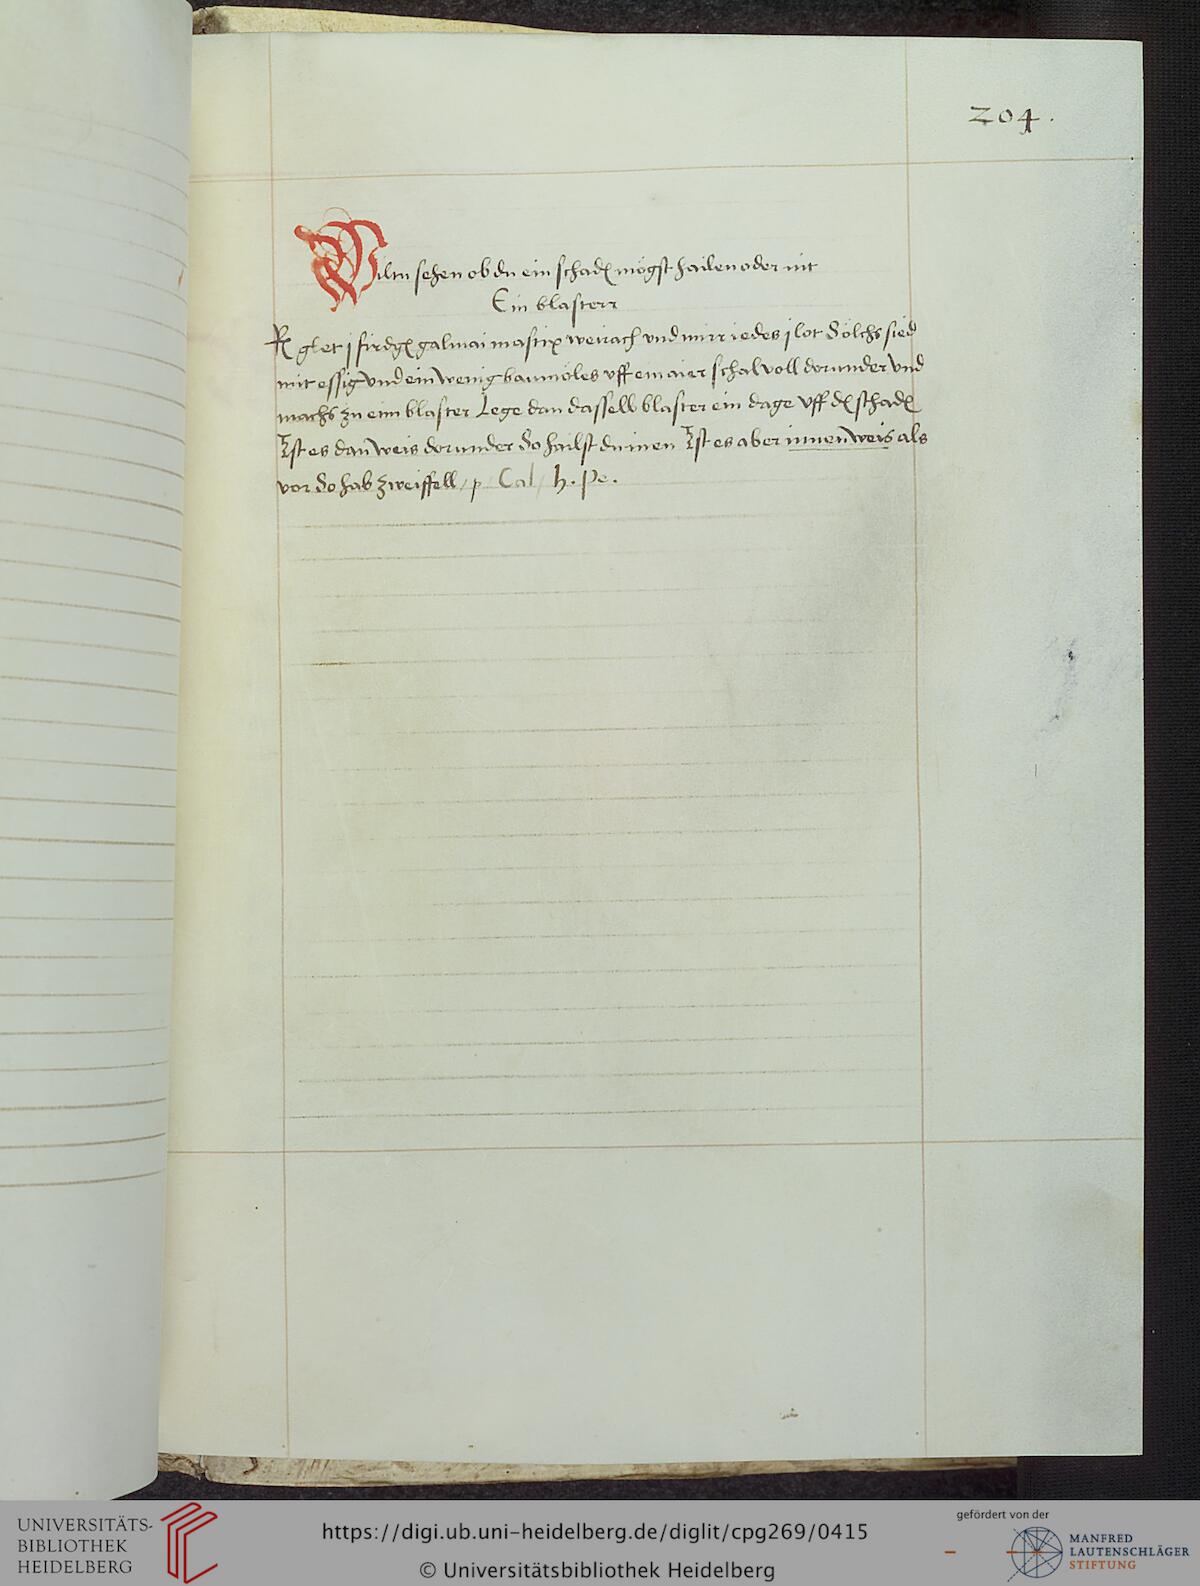 204.
Wiltu sehen ob du ein schadē mögst hailen oder nit
Ein blasterr
℞ glet j firdgē galmai mastix weirach vnd mirr iedes j lot Sölchs sied
mit essig vnd ein wenig baumöles vff em aier schal voll dorunder vnd
machs zu eim blaster Lege dan dasselb blaster ein dage vff dē schadē
Ist es dan weis dorunder So hailst du inen Ist es aber innen weis als
vor So hab zweiffell / p / Cal / h. Pe.
UNIVERSITÄTS-
BIBLIOTHEK
HEIDELBERG
https://digi.ub.uni-heidelberg.de/diglit/cpg269/0415
© Universitätsbibliothek Heidelberg
gefördert von der
MANFRED
LAUTENSCHLÄGER
STIFTUNG